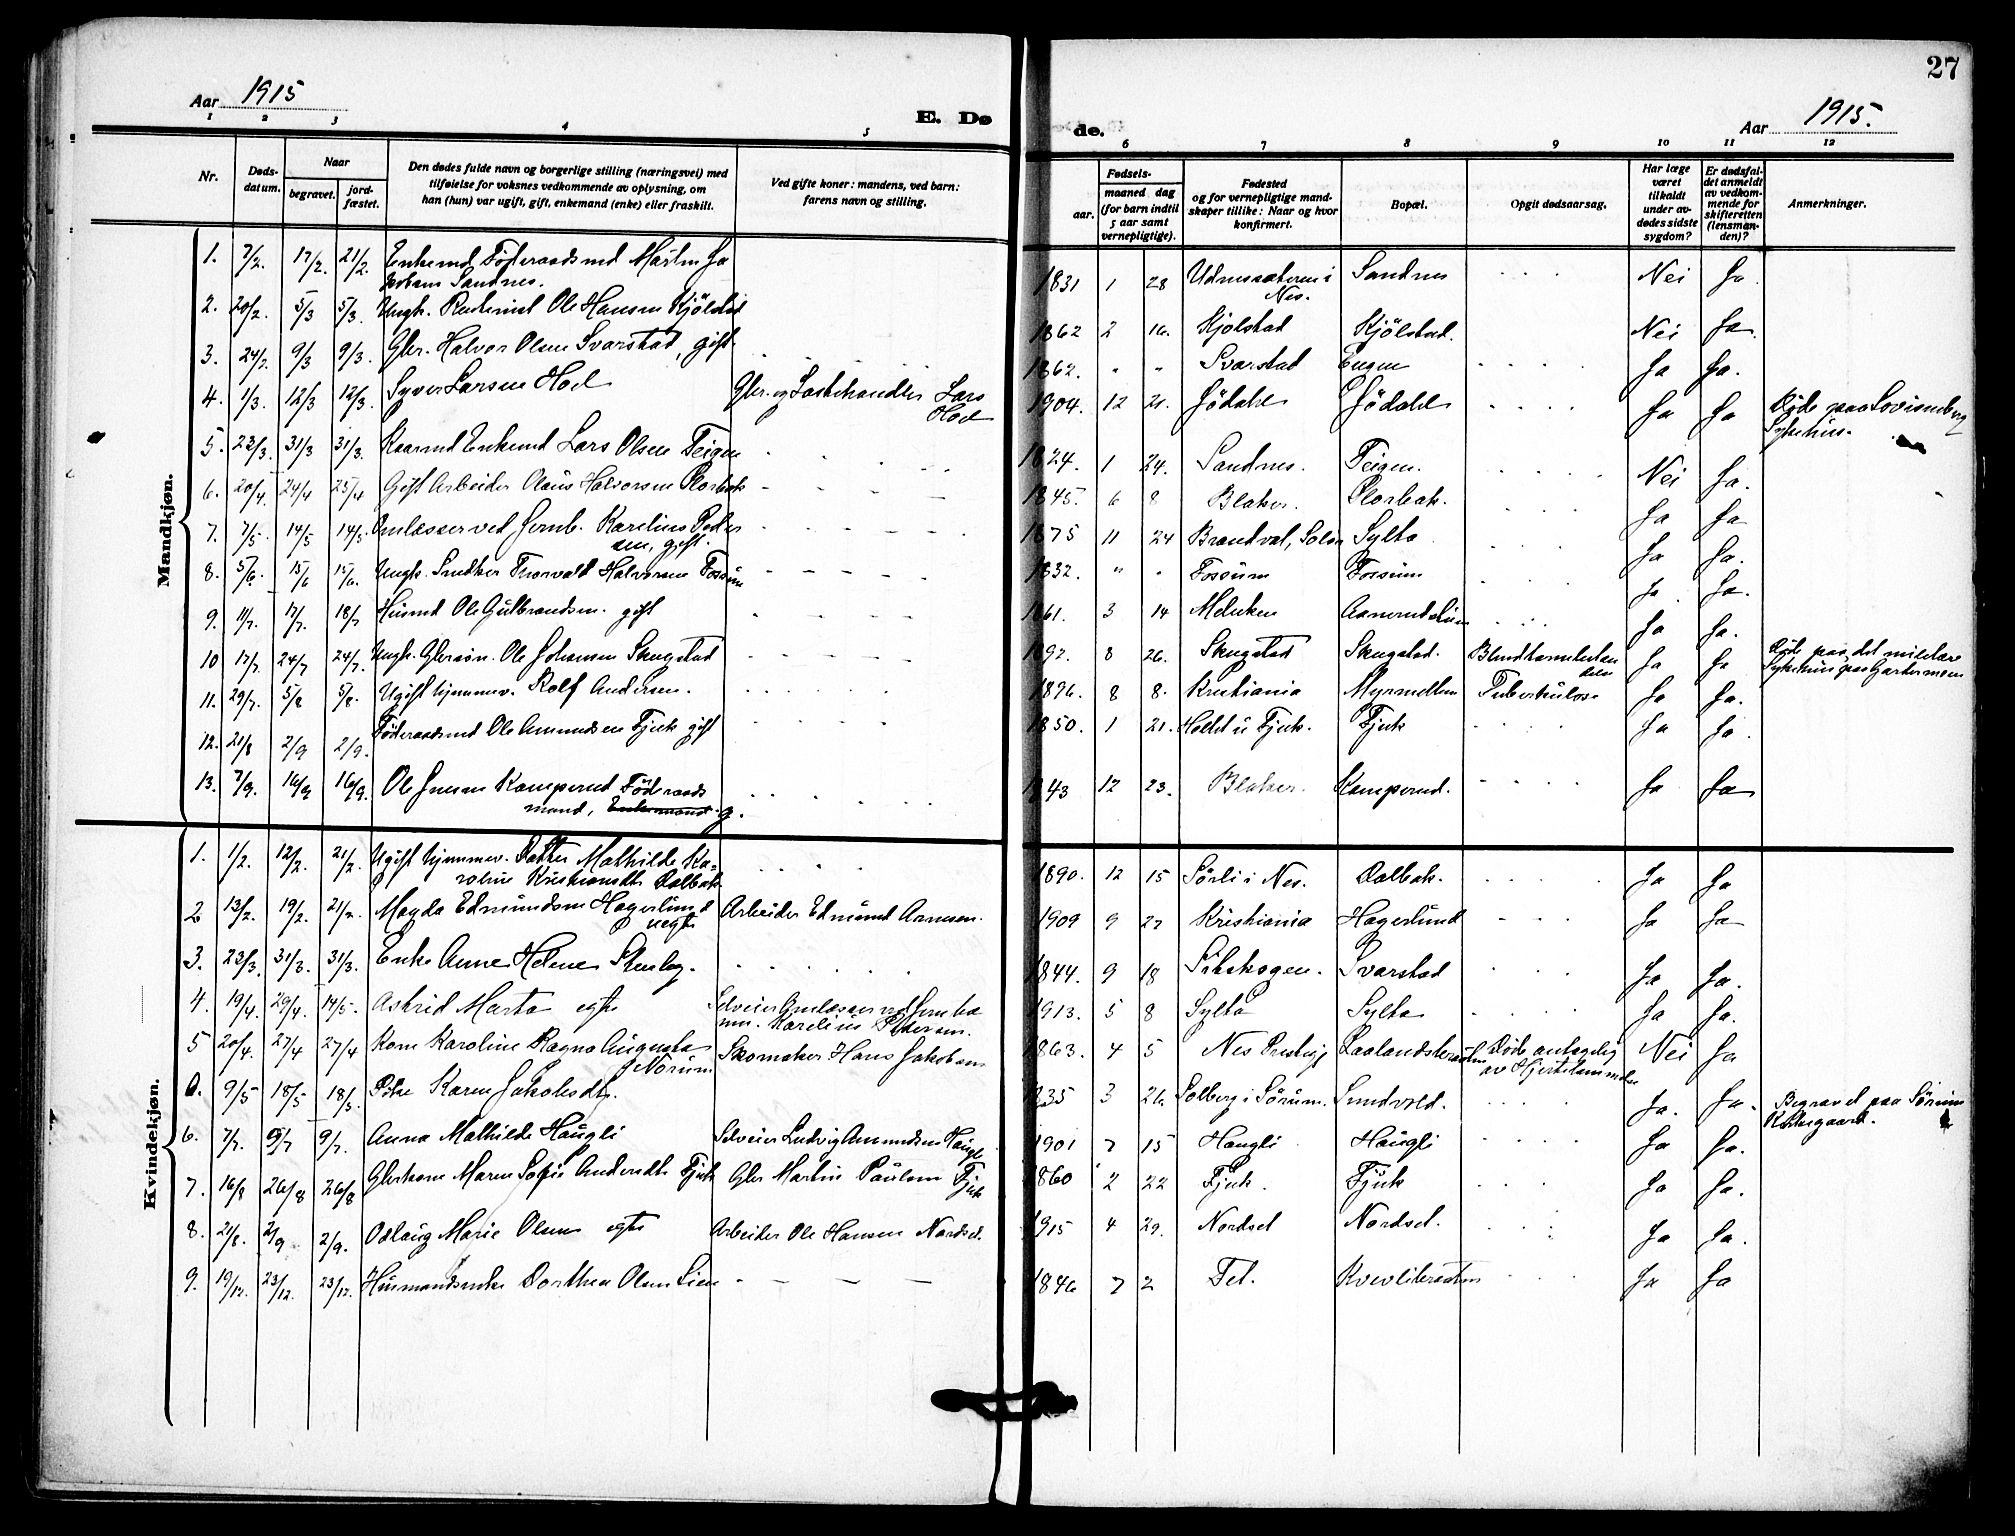 27
Aar 1915
E. Dø
de.
Aar 1915.
1 2 3 4 5 6 7 8 9 10 11 12
Nr.
Døds-
datum.
Naar
begravet.
jord-
fæstet.
Den dødes fulde navn og borgerlige stilling (næringsvei) med
tilføielse for voksnes vedkommende av oplysning, om
han (hun) var ugift, gift, enkemand (enke) eller fraskilt.
Ved gifte koner: mandens, ved barn:
farens navn og stilling.
Fødsels-
aar.
maaned dag
(for barn indtil
5 aar samt
vernepligtige).
Fødested
og for vernepligtige mand-
skaper tillike: Naar og hvor
konfirmert.
Bopæl.
Opgit dødsaarsag.
Har læge
været
tilkaldt
under av-
dødes sidste
sygdom?
Er dødsfal-
det anmeldt
av vedkom-
mende for
skifteretten
(lensman-
den)?
Anmerkninger.
Mandkjøn.
1. 7/2. 17/2. 21/2. Enkemd Föderaadsmd Martin Ja
kobsen Sandnes. 1831 1 28 Udnessæteren i Nes. Sandnes Nei Ja.
2. 20/2. 5/3 5/3. Ungk. Ole Hansen Kjölstad 1862 2 16. Kjölstad Kjölstad. Nei Ja.
3. 24/2. 9/3 9/3. Gbr. Halvor Olsen Svarstad, gift 1862. " " Svarstad Engen Ja Ja.
4. 1/3. 12/3 12/3. Syver Larsen Hod Gbr. og Lars Hod 1904. 12 21. Jödahl Jödahl Ja Ja Döde paa Lovisenberg
Sykehus.
5. 23/3. 31/3 31/3. Kaarmd Enkemd Lars Olsen Teigen 1824. 1 24. Sandnes. Teigen. Nei Ja.
6. 20/4. 24/4 25/4 Gift Arbeider Olaus Halvorsen Plorbak 1845. 6 8 Blaker. Plorbak. Ja Ja
7. 7/5. 14/5 14/5. Omlasser ved Jernb. Karelius Peder
sen, gift. 1875 11 24 Brandval, Solör Sylta Ja Ja.
8. 5/6. 15/6 15/6. Ungk. Snedker Thorvald Halvorsen Fossum 1832. " " Fossum Fossum Ja. Ja.
9. 11/7. 17/7. 18/7 Husmd Ole Gulbrandsen. gift 1861. 3 14 Melnken Aamodt Ja Ja.
10 17/7. 24/7 24/7. Ungk. Gbrsön. Ole Johansen Skugstad 1892. 8 26. Skugstad Skugstad. Blindtarmbetændelse Ja Ja Döde paa det militære
Sykehus paa Gardermoen
11. 29/7. 5/8 5/8. Ugift hjemmev. Rolf Andersen. 1896. 8 8. Kristiania Myrmellem Tuberkulose Ja Ja.
12. 21/8 2/9 2/9. Föderaadsmd Ole Amundsen Fjuk gift 1850. 1 21. Holtet u Fjuk. Fjuk Ja Ja.
13. 7/9. 16/9 16/9. Ole Jensen Kamperud Föderaads
mand, Enkemand g. 1843 12 23. Blaker. Kamperud. Ja Ja
Kvindekjøn.
1. 1/2. 12/2. 21/2. Ugift hjemmev. Datter Mathilde Ka-
roline Kristiansdtr Dalbak 1890. 12 15 Sörli i Nes. Dalbak. Ja Ja
2 13/2. 19/2. 21/2. Magda Edmundsen Hagerlund
uegte Arbeider Edmund Arnesen. 1909 9 27 Kristiania Hagerlund Ja Ja
3. 23/3. 31/3. 31/3. Enke Anne Helene Stenby. 1844. 9 18 Siteskogen. Svarstad Ja Ja.
4. 19/4. 29/4. 14/5. Astrid Marta egte Selveier Omlasser ved Jernba
nen. Karelius Pedersen. 1913. 5 8 Sylta Sylta Ja Ja.
5 20/4. 27/4 27/4 Kone Karoline Ragna Augusta
Norum Skomaker Hans Jakobsen 1863. 4 5 Nes Prestegj Döde antagelig
av Hjertelammelse Nei Ja
0. 9/5 18/5 18/5. Pike Karen Jakobsdtr. 1835 3 26. Solberg i Sörum. Sundvold. Ja. Ja. Begravet paa Sörum
Kirkegaard.
6. 7/7. 9/7 9/7. Anna Mathilde Haugli Selveier Ludvig Amundsen Haugli 1901 7 15 Haugli Haugli Ja Ja.
7. 16/8 26/8 26/8 Gbrkone Maren Sofie Andersdtr Fjuk Gbr Martin Paulsen Fjuk 1860 2 22 Fjuk. Fjuk Ja Ja.
8. 21/8. 2/9 2/9. Odlaug Marie Olsen egte Arbeider Ole Hansen Nordset. 1915 4 29. Nordset Nordset. Ja Ja.
9. 19/12. 23/12. 23/12. Husmandsenke Dorthea Olsen Lien 1846 7 2 Fet. Kvevliteraaten Ja Ja